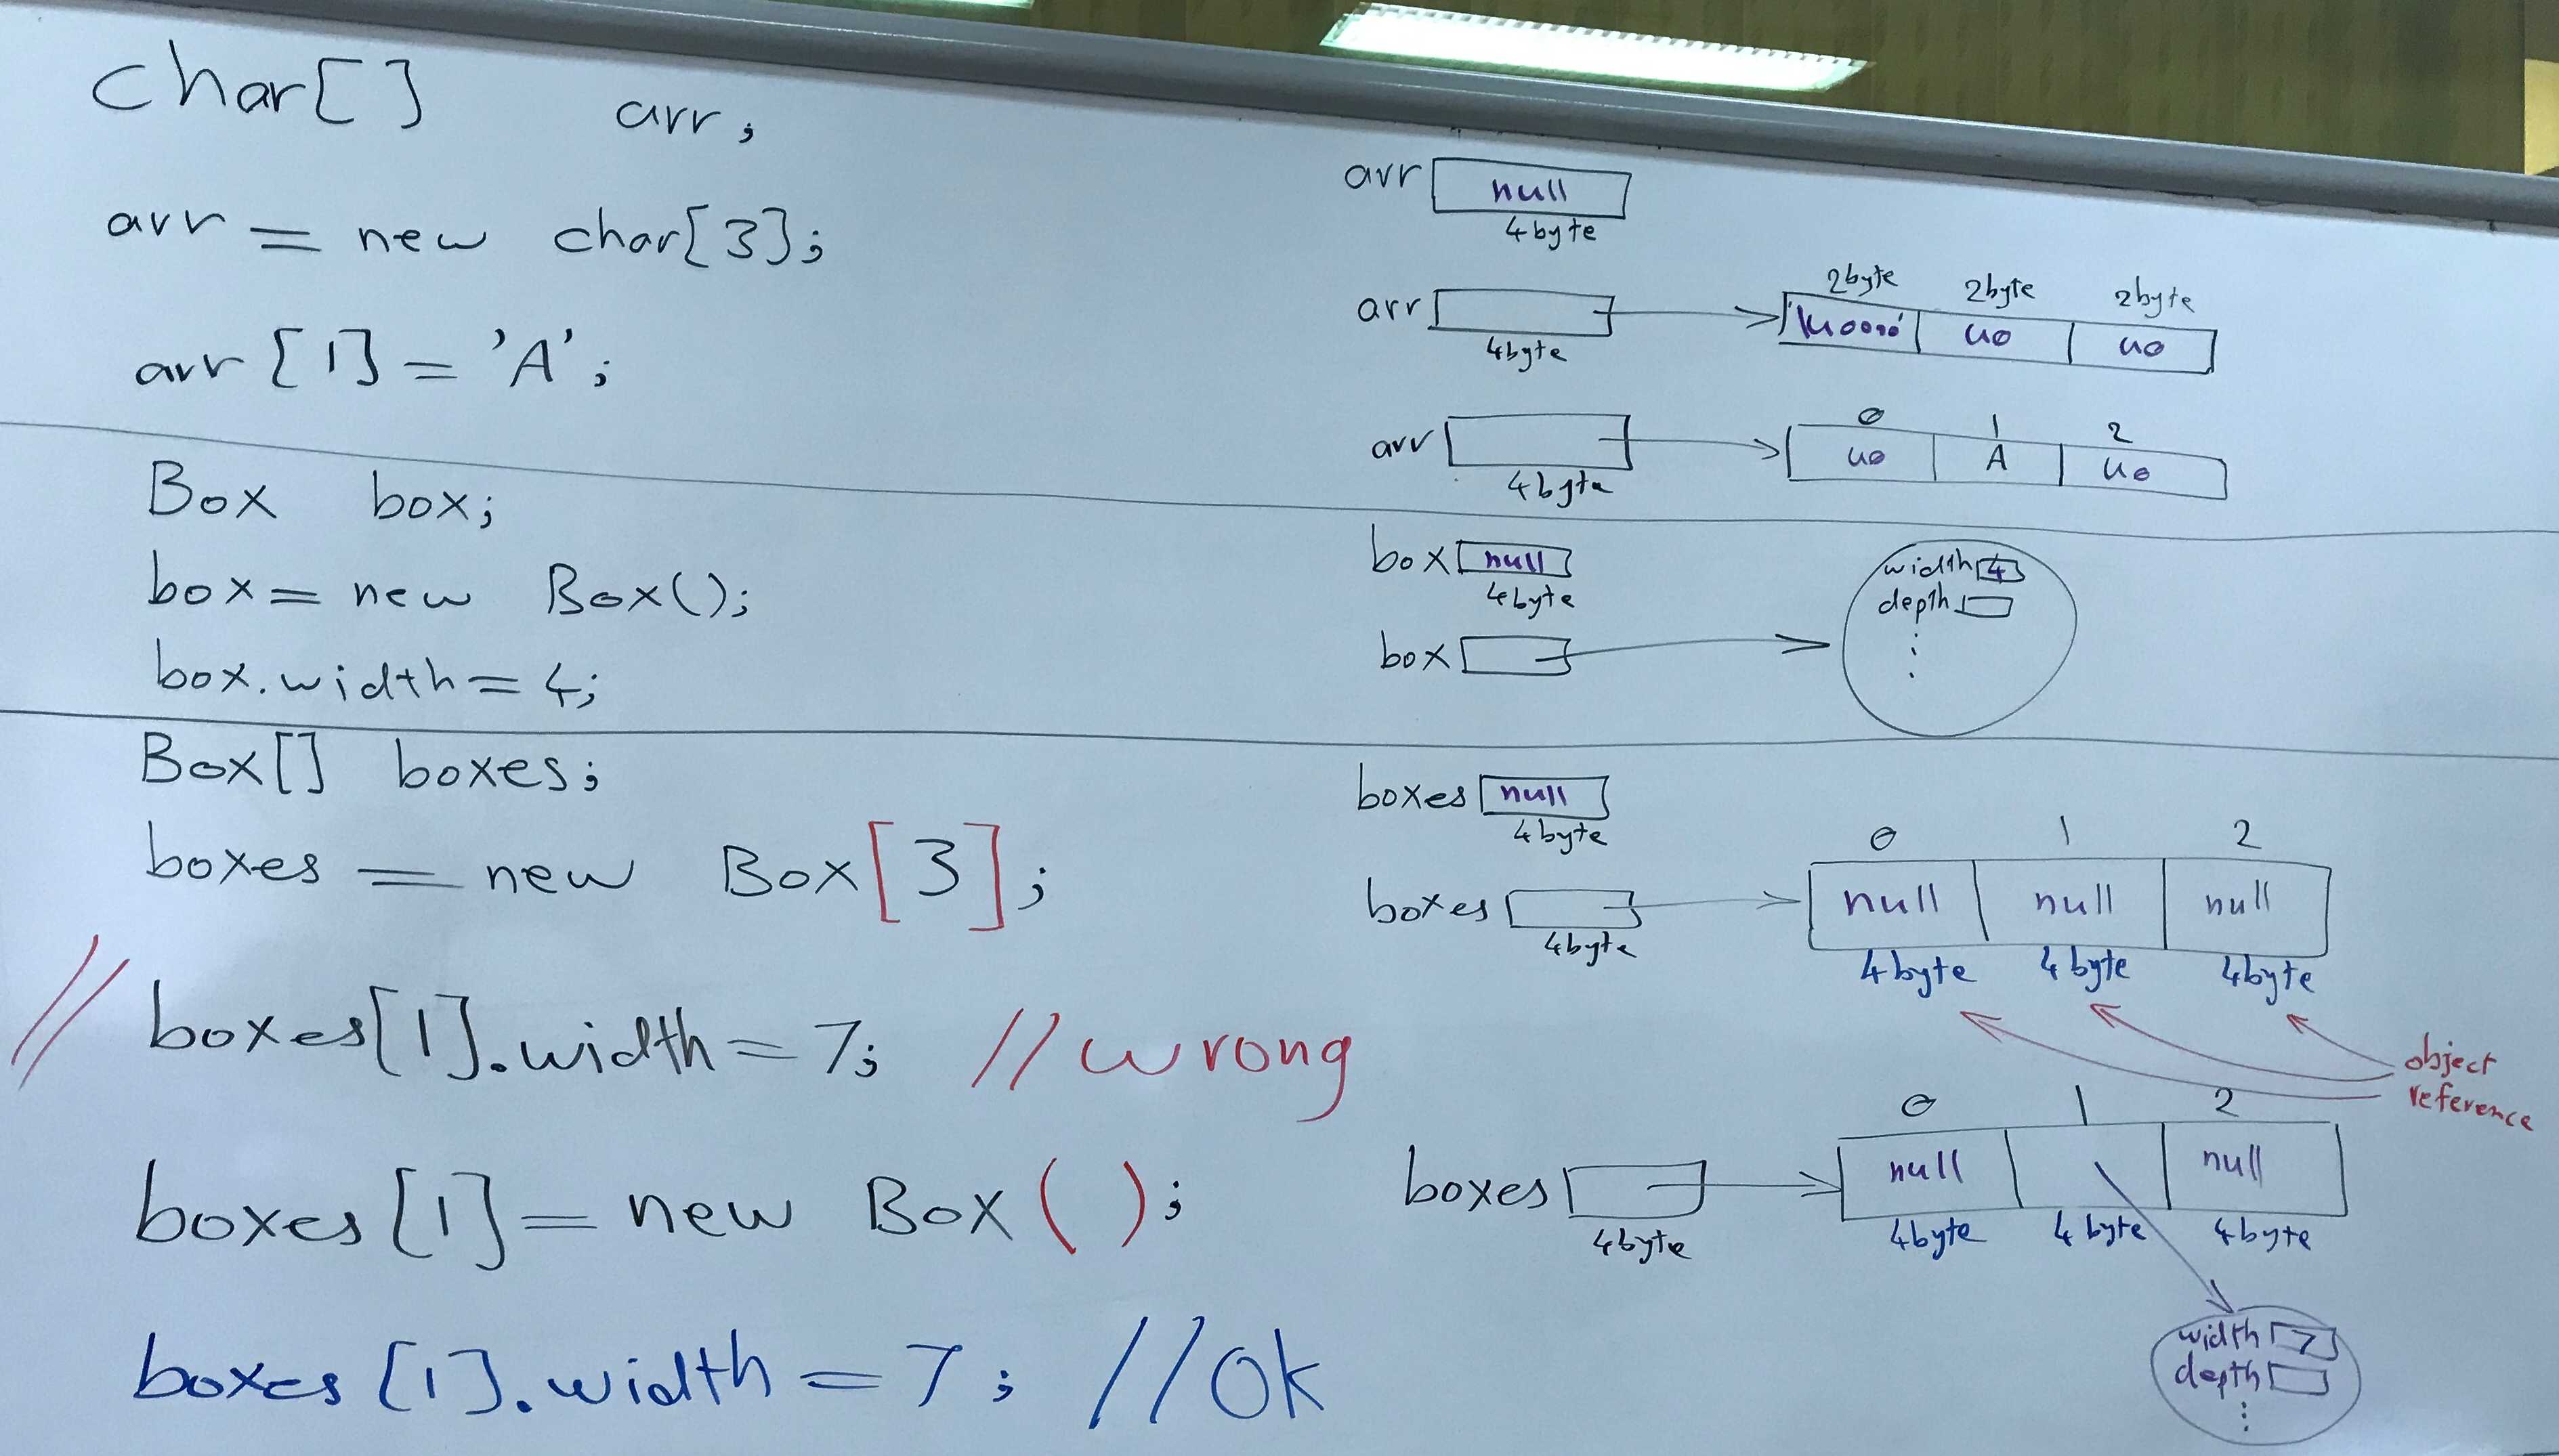 char[] arr;
arr = new char[3];
arr[1] = 'A';
arr null
4byte
2byte 2byte 2byte
arr '\u0000' u0 u0
4byte
0 1 2
arr u0 A u0
4byte
Box box;
box = new Box();
box.width = 4;
box null
4byte
box
width 4
depth
Box[] boxes;
boxes = new Box[3];
// boxes[1].width = 7; // wrong
boxes[1] = new Box();
boxes[1].width = 7; // Ok
boxes null
4byte
0 1 2
boxes null null null
4byte
4byte 4byte 4byte
object
reference
0 1 2
boxes null null
4byte
4byte 4byte 4byte
width 7
depth